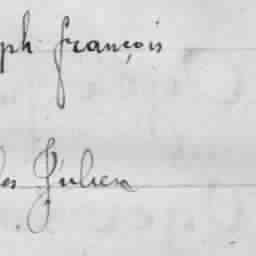 ph françois
es Julien